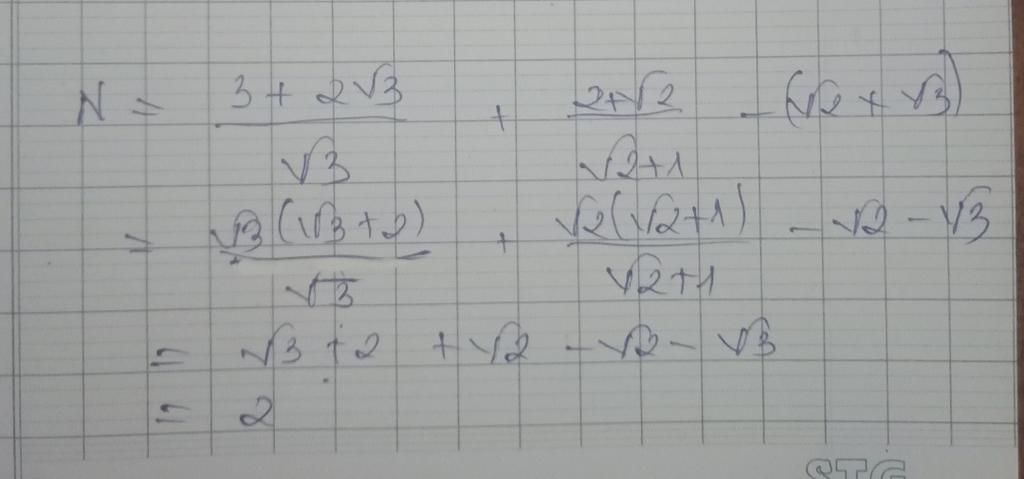 N = (3 + 2√3)/√3 + (2+√2)/(√2+1) - (√2 + √3)
= √3(√3+2)/√3 + √2(√2+1)/(√2+1) - √2 - √3
= √3 + 2 + √2 - √2 - √3
= 2